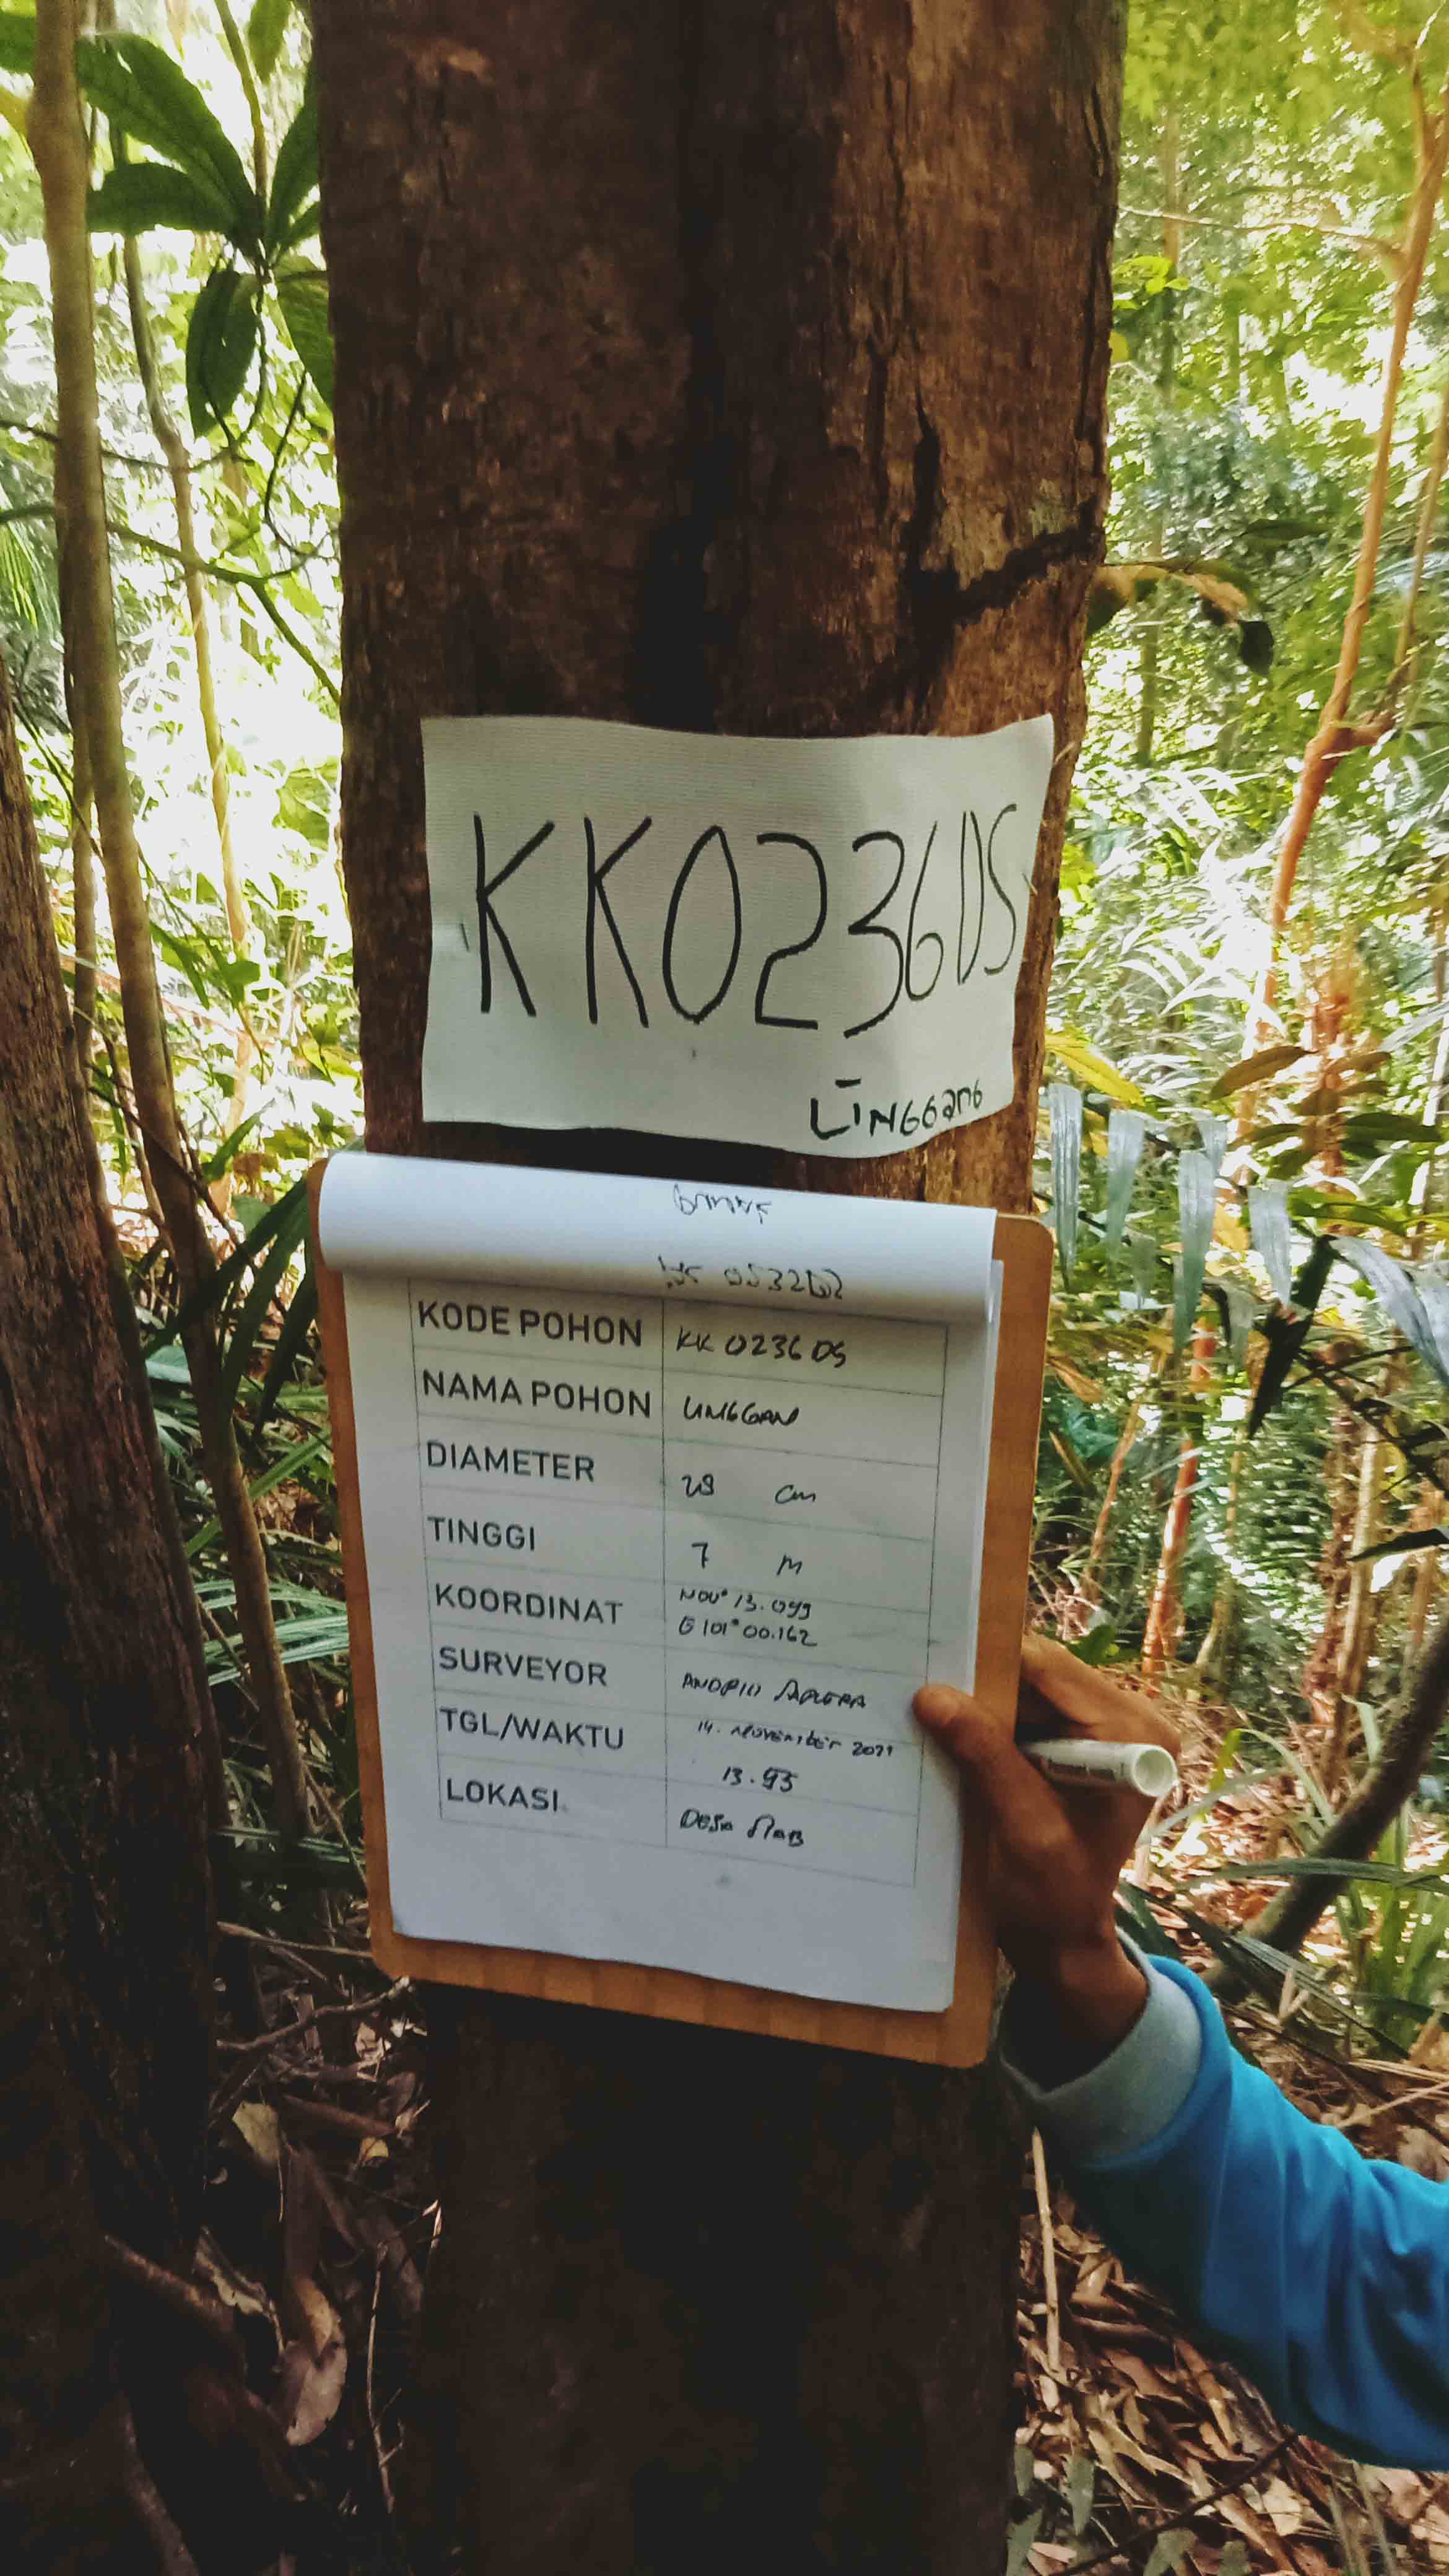 KK0236DS
LINGGANG
KODE POHON KK 0236 DS
NAMA POHON LINGGANG
DIAMETER 28 cm
TINGGI 7 M
KOORDINAT N00° 13.099
E 101° 00.162
SURVEYOR
TGL/WAKTU 14. NOVEMBER 2021
13.45
LOKASI DESA